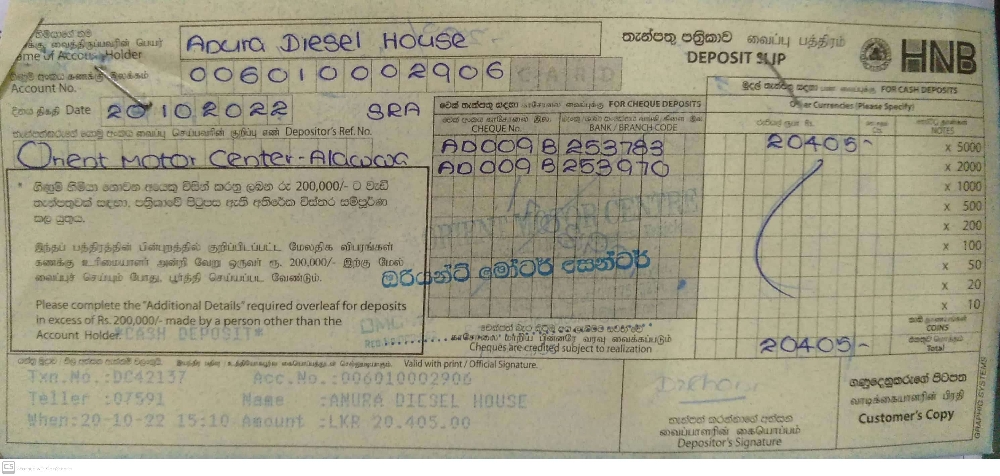 ගිණුම් හිමියාගේ නම
Name of Account Holder
Anura Diesel House
තැන්පතු පත්‍රිකාව வைப்பு பத்திரம்
DEPOSIT SLIP
HNB
Account No.
006010002906 CARD
දිනය திகதி Date 20 10 2022 SRA
Depositor's Ref. No.
Orient Motor Center-Alawwa
FOR CHEQUE DEPOSITS
CHEQUE No. BANK / BRANCH-CODE
AD009B253783
AD009B253970
FOR CASH DEPOSITS
Other Currencies (Please Specify)
Rs. Cts. NOTES
20405- x 5000
x 2000
x 1000
x 500
x 200
x 100
x 50
x 20
x 10
COINS
Total
20405-
* ගිණුම් හිමියා නොවන අයෙකු විසින් කරනු ලබන රු 200,000/- ට වැඩි
තැන්පතුවක් සඳහා, පත්‍රිකාවේ පිටුපස ඇති අතිරේක විස්තර සම්පූර්ණ
කල යුතුය.
இந்தப் பத்திரத்தின் பின்புறத்தில் குறிப்பிடப்பட்ட மேலதிக விபரங்கள்
கணக்கு உரிமையாளர் அன்றி வேறு ஒருவர் ரூ. 200,000/- இற்கு மேல்
வைப்புச் செய்யும் போது, பூர்த்தி செய்யப்பட வேண்டும்.
Please complete the "Additional Details" required overleaf for deposits
in excess of Rs. 200,000/- made by a person other than the
Account Holder.
*CASH DEPOSIT*
ORIENT MOTOR CENTRE
ඔරියන්ට් මෝටර් සෙන්ටර්
Cheques are credited subject to realization
Valid with print / Official Signature.
Txn.No.:DC42137 Acc.No.:006010002906
Teller :07591 Name :ANURA DIESEL HOUSE
When:20-10-22 15:10 Amount :LKR 20.405.00
තැන්පත් කරන්නාගේ අත්සන
வைப்பாளரின் கையொப்பம்
Depositor's Signature
ගණුදෙනුකරුගේ පිටපත
வாடிக்கையாளரின் பிரதி
Customer's Copy
GRAPHIC SYSTEMS
CS